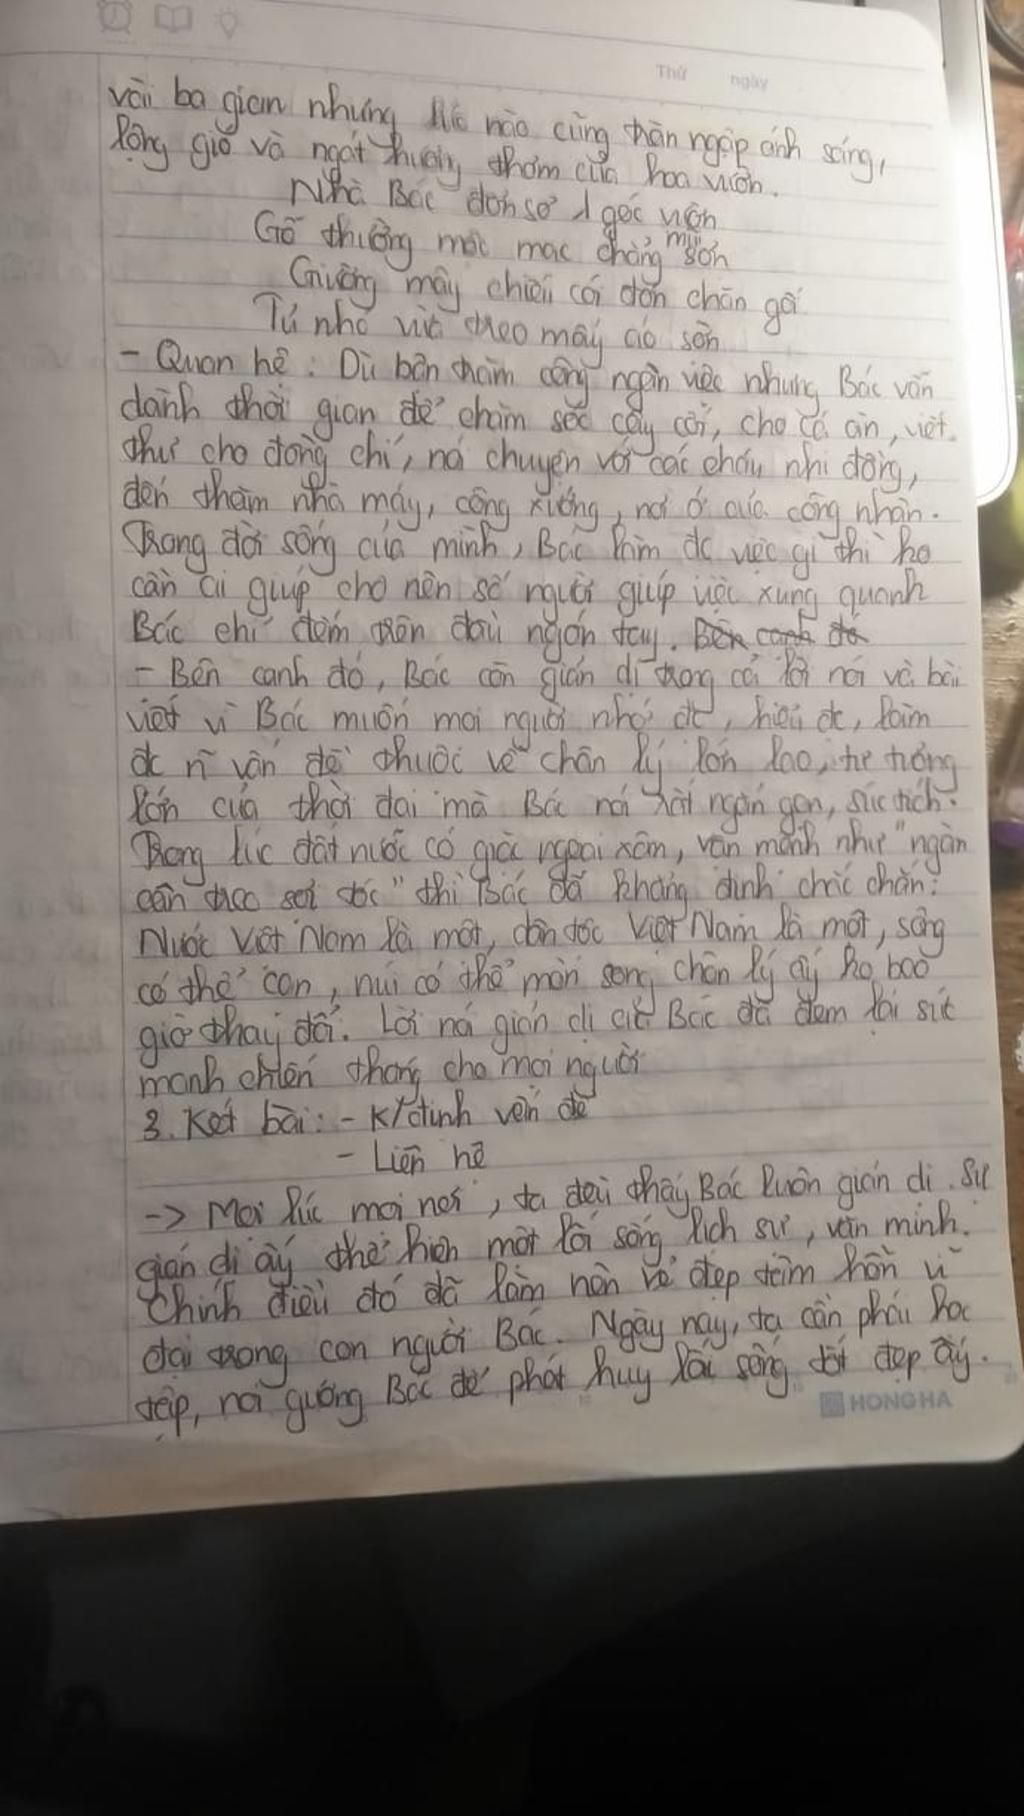 Thứ ngày
vài ba gian nhưng lúc nào cũng tràn ngập ánh sáng,
lộng gió và ngát hương thơm của hoa vườn.
Nhà Bác đơn sơ 1 góc vườn
Gỗ thường mộc mạc chẳng mùi sơn
Giường mây chiếu cói đơn chăn gối
Tủ nhỏ vừa treo mấy áo sờn
- Quan hệ: Dù bận trăm công ngàn việc nhưng Bác vẫn
dành thời gian để chăm sóc cây cối, cho cá ăn, viết
thư cho đồng chí, nói chuyện với các cháu nhi đồng,
đến thăm nhà máy, công xưởng, nơi ở của công nhân.
Trong đời sống của mình, Bác làm đc việc gì thì ko
cần ai giúp cho nên số người giúp việc xung quanh
Bác chỉ đếm trên đầu ngón tay. Bên cạnh đó
- Bên cạnh đó, Bác còn giản dị trong cả lời nói và bài
viết vì Bác muốn mọi người nhớ đc, hiểu đc, làm
đc n~ vấn đề thuộc về chân lý lớn lao, tư tưởng
lớn của thời đại mà Bác nói rất ngắn gọn, súc tích.
Trong lúc đất nước có giặc ngoại xâm, vận mệnh như "ngàn
cân treo sợi tóc" thì Bác đã khẳng định chắc chắn:
Nước Việt Nam là một, dân tộc Việt Nam là một, sông
có thể cạn, núi có thể mòn song chân lý ấy ko bao
giờ thay đổi. Lời nói giản dị của Bác đã đem lại sức
mạnh chiến thắng cho mọi người
3. Kết bài: - K/định vấn đề
- Liên hệ
-> Mọi lúc mọi nơi, ta đều thấy Bác luôn giản dị. Sự
giản dị ấy thể hiện một lối sống lịch sự, văn minh.
Chính điều đó đã làm nên vẻ đẹp tâm hồn vĩ
đại trong con người Bác. Ngày nay, ta cần phải học
tập, noi gương Bác để phát huy lối sống tốt đẹp ấy.
HONG HA